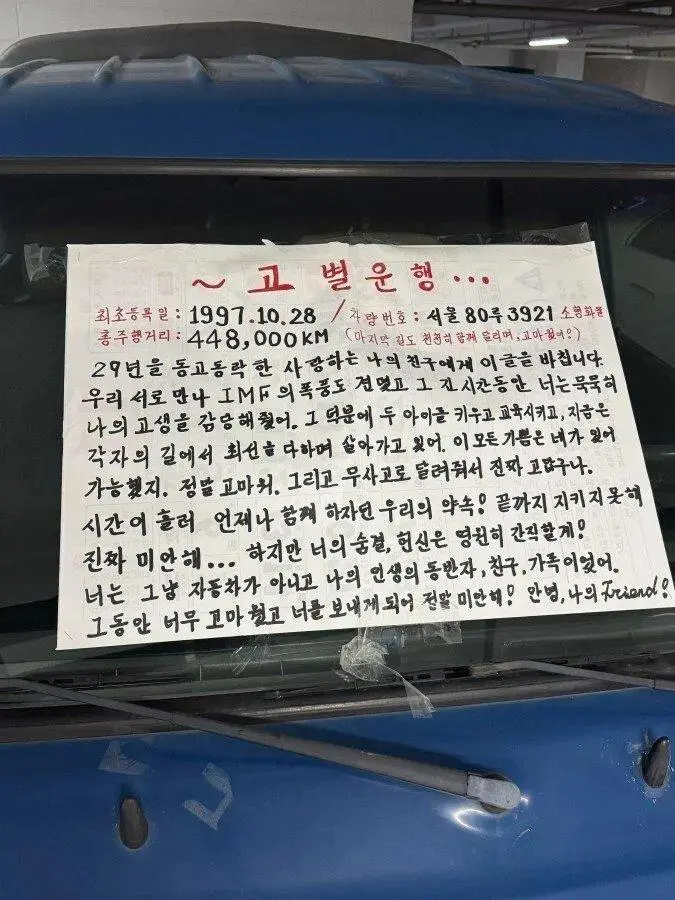 ~ 고 별 운 행 ...
최초등록일 : 1997.10.28 / 차량번호 : 서울 80루 3921 소형화물
총주행거리 : 448,000KM (마지막 길도 천천히 함께 달리며, 고마웠어!)
29년을 동고동락한 사랑하는 나의 친구에게 이 글을 바칩니다.
우리 서로 만나 IMF의 폭풍도 견뎠고 그 긴 시간동안 너는 묵묵히
나의 고생을 감당해줬어. 그 덕분에 두 아이를 키우고 교육시키고, 지금은
각자의 길에서 최선을 다하며 살아가고 있어. 이 모든 기쁨은 네가 있어
가능했지. 정말 고마워. 그리고 무사고로 달려줘서 진짜 고맙구나.
시간이 흘러 언제나 함께 하자던 우리의 약속! 끝까지 지키지 못해
진짜 미안해... 하지만 너의 숨결, 헌신은 영원히 간직할게!
너는 그냥 자동차가 아니고 나의 인생의 동반자, 친구, 가족이었어.
그동안 너무 고마웠고 너를 보내게 되어 정말 미안해! 안녕, 나의 Friend!